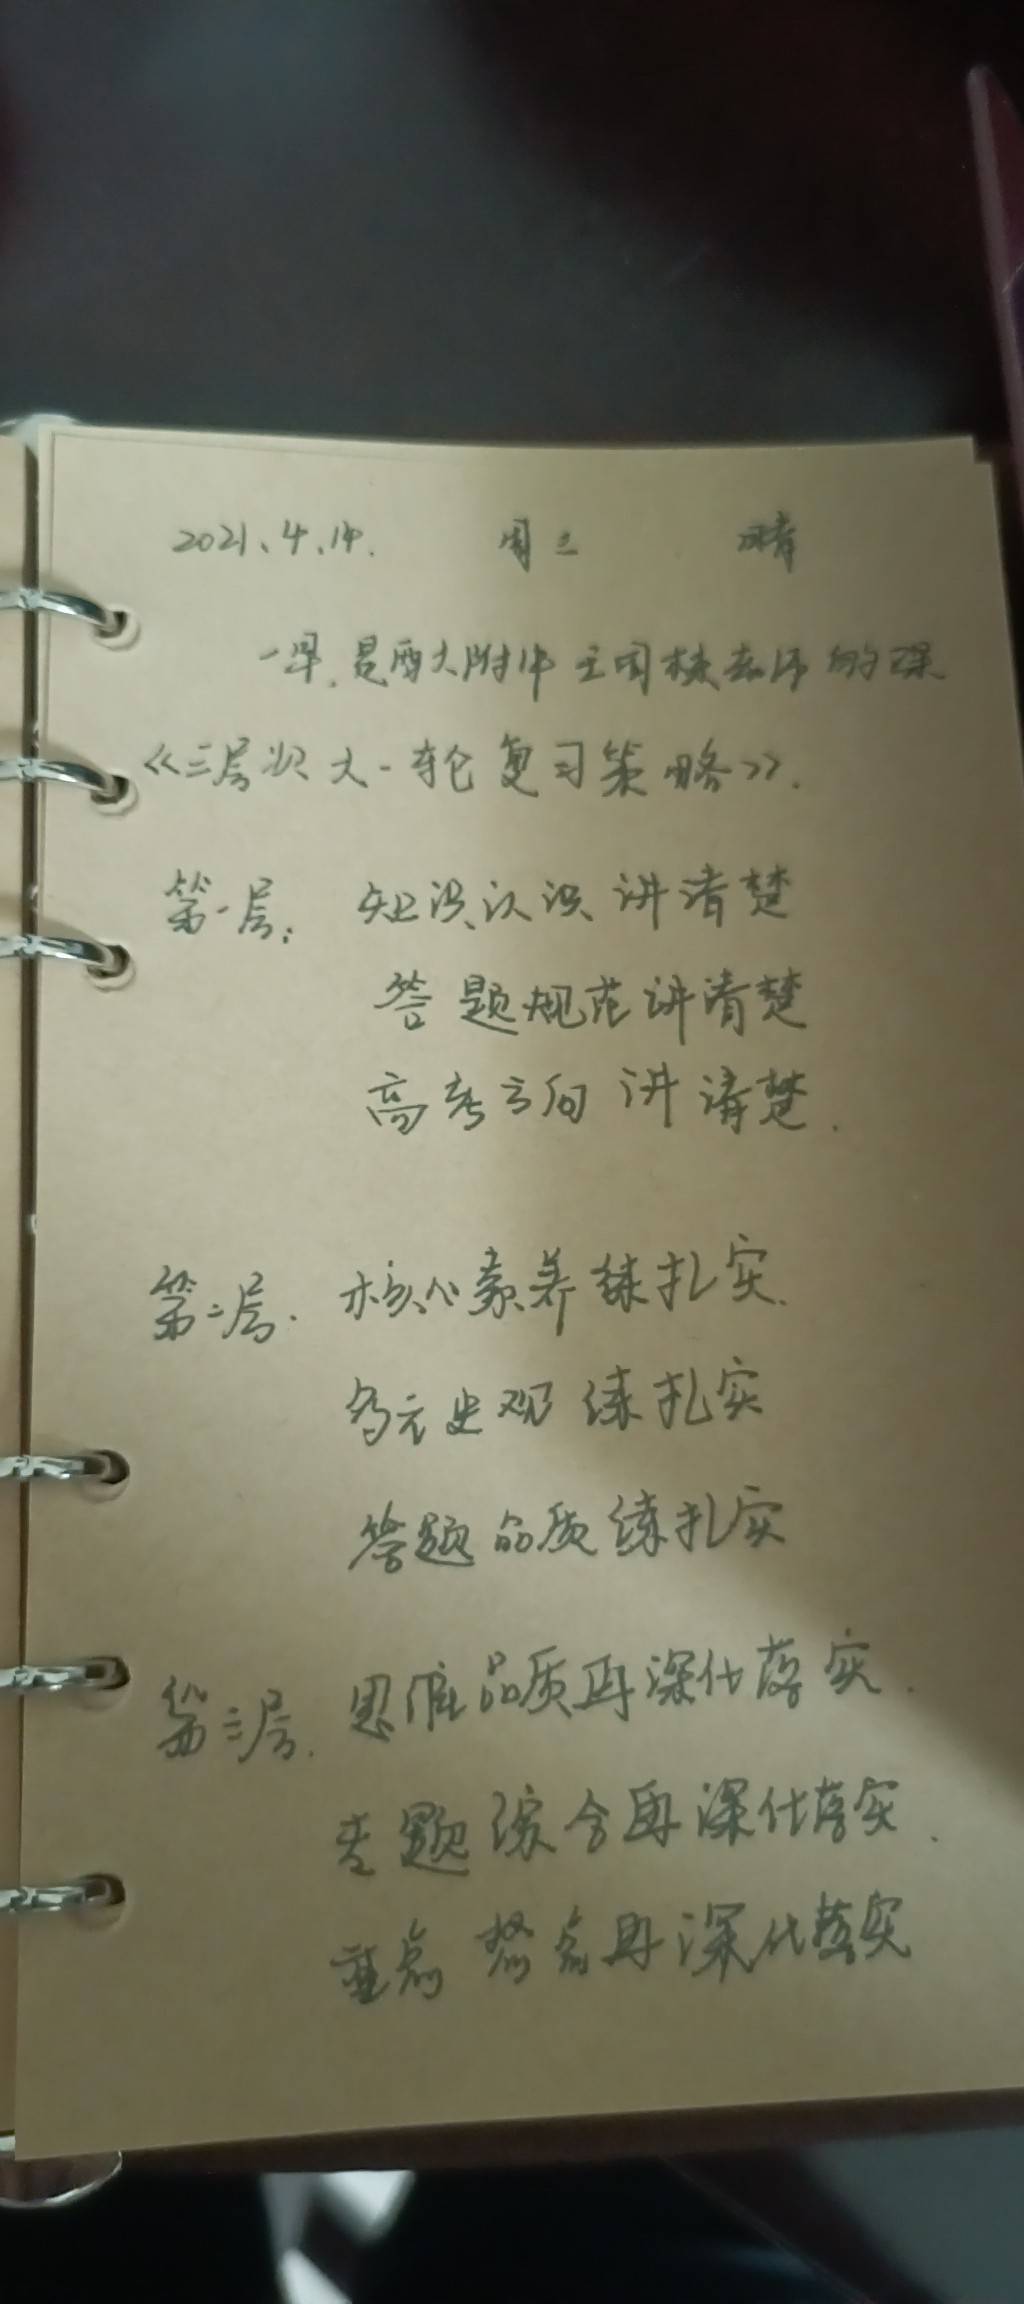 2021.4.14. 周三 晴
一早,是西大附中王国栋老师的课
《三层次大一轮复习策略》.
第一层: 知识认识讲清楚
答题规范讲清楚
高考方向讲清楚.
第二层. 核心素养练扎实.
多元史观练扎实
答题品质练扎实
第三层. 思维品质再深化落实.
专题综合再深化落实.
重点 再深化落实